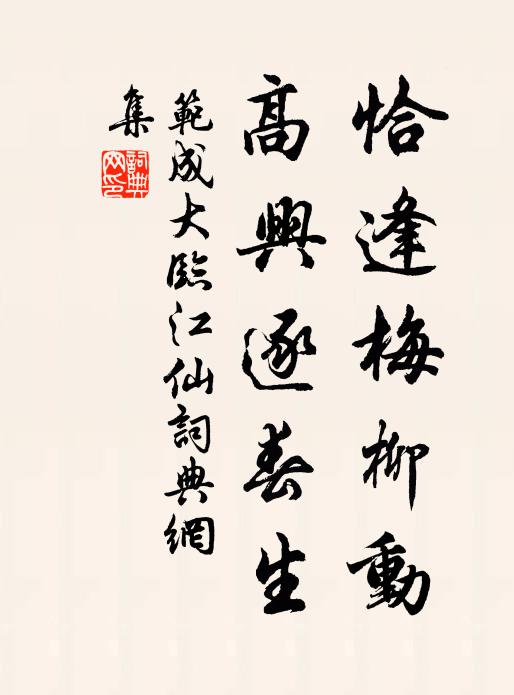 恰逢梅柳動
高興逐春生
範成大臨江仙詞典網
集
詞典網印